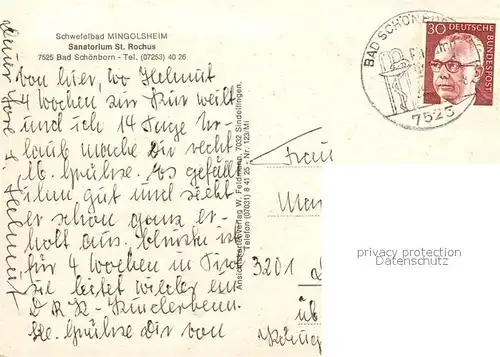 Schwefelbad MINGOLSHEIM
Sanatorium St. Rochus
7525 Bad Schönborn - Tel. (07253) 40 26
von hier, wo Helmut
4 Wochen zur Kur weilt
und ich 14 Tage Ur-
laub mache Dir recht
lb. Grüße. Es gefällt
ihm gut und sieht
er schon ganz er-
holt aus. ist
für 4 Wochen in
sie leitet wieder ein
D R K - Kinderheim
Grüße Dir von
Helmut
Ansichtskartenverlag W. Feldmann, 7032 Sindelfingen,
Telefon (07031) 8 41 25 - Nr. 123/MI
BAD SCHÖNBORN
7525
30 DEUTSCHE BUNDESPOST
Frau
3201
privacy protection
Datenschutz